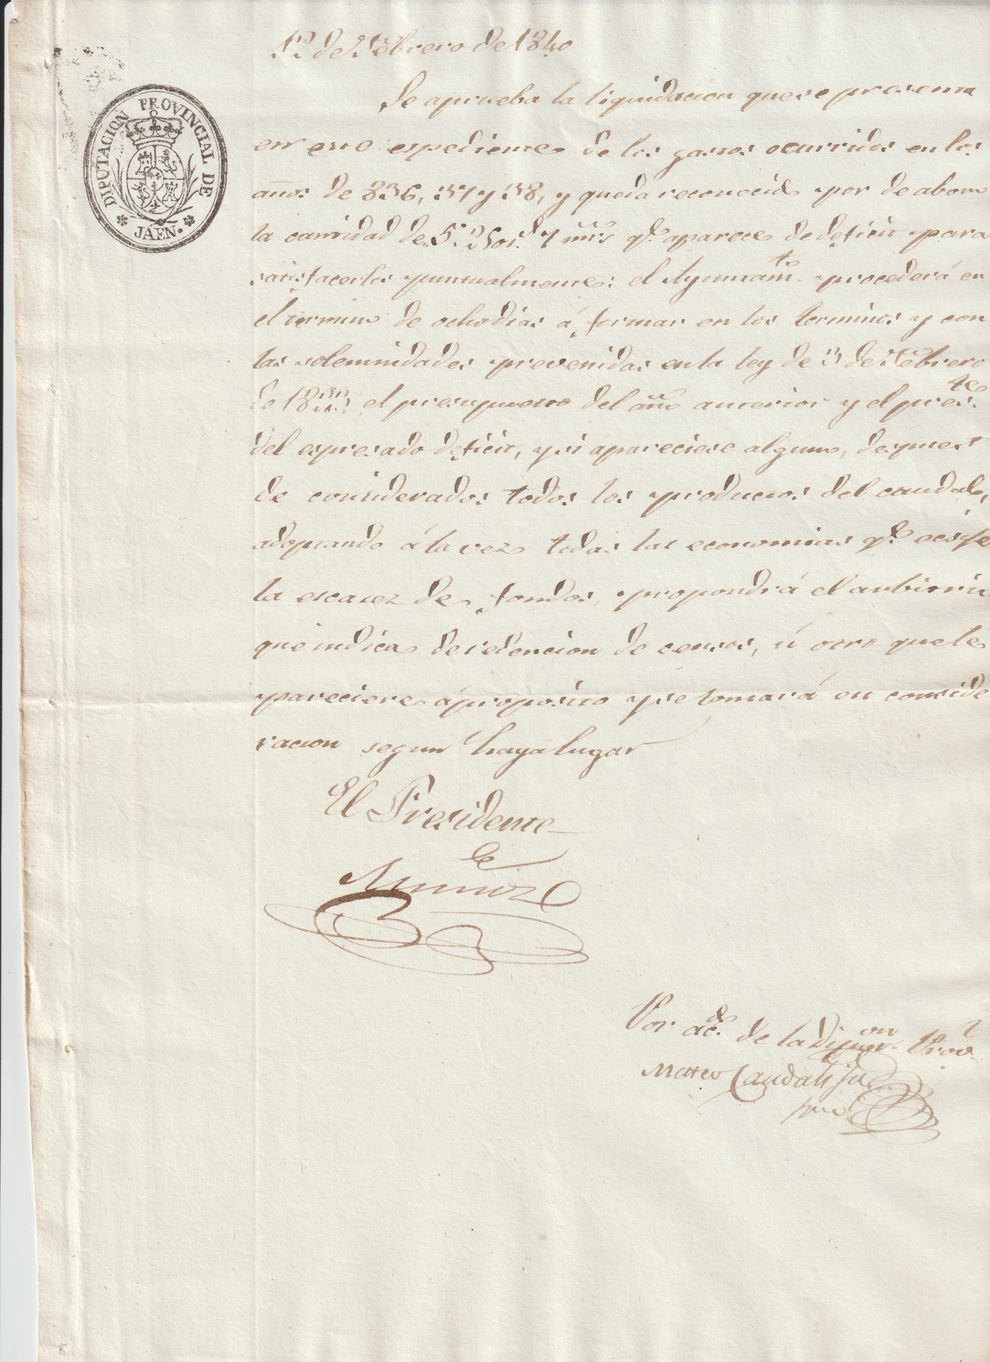 12 de Febrero de 1840
DIPUTACION PROVINCIAL DE JAÉN.
Se aprueba la liquidacion que se presenta
en este espediente de los gastos ocurridos en los
años de 836, 37 y 38, y queda reconocida por de abono
la cantidad de 7 mrs qe. aparece de deficit para
satisfacerlos puntualmente: el Ayuntamto. procederá en
el termino de ocho dias á formar en los terminos y con
las solemnidades prevenidas en la ley de 3 de Febrero
de 1823 el presupuesto del año anterior y el preste.
del espresado deficit, y si apareciese alguno, despues
de considerados todos los productos del caudal,
adoptando á la vez todas las economias qe. ecsije
la escasez de fondos, propondrá el arbitrio
que indica de redencion de censos, ú otro que le
pareciere á proposito y se tomará en conside
racion segun haya lugar
El Presidente
Muñoz
Por acdo. de la Dipon. Provl.
Mateo Candalija
srio